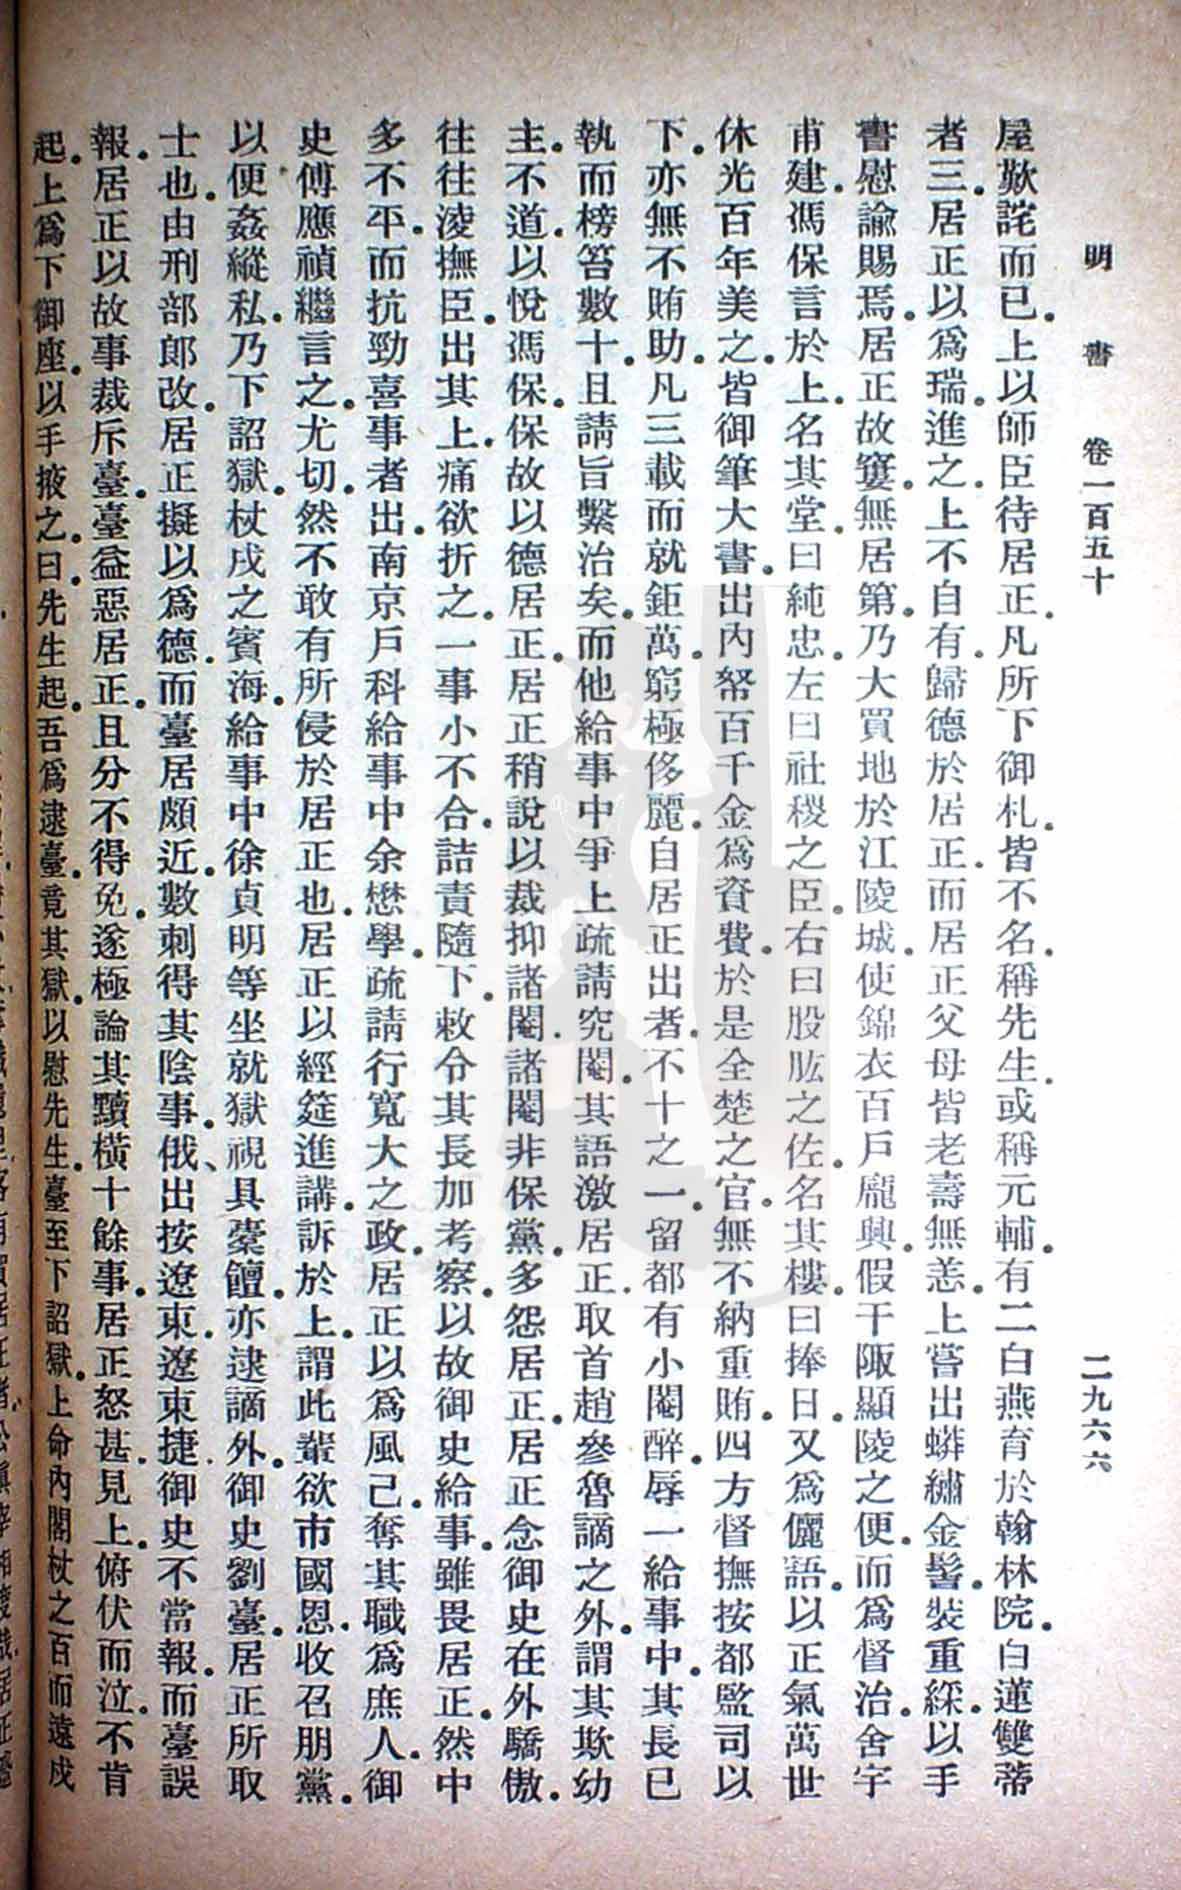 明書 卷一百五十 二九六六
屋歎詫而已。上以師臣待居正。凡所下御札。皆不名。稱先生。或稱元輔。有二白燕育於翰林院。白蓮雙蒂
者三。居正以爲瑞。進之。上不自有。歸德於居正。而居正父母皆老壽無恙。上嘗出蟒繡金髻。裝重綵。以手
書慰諭賜焉。居正故窶。無居第。乃大買地於江陵城。使錦衣百戶龐興。假干陬顯陵之便。而爲督治。舍宇
甫建。馮保言於上。名其堂曰純忠。左曰社稷之臣。右曰股肱之佐。名其樓曰捧日。又爲儷語。以正氣萬世
休光百年美之。皆御筆大書。出內帑百千金爲資費。於是全楚之官。無不納重賄。四方督撫按都監司以
下。亦無不賄助。凡三載而就。鉅萬。窮極侈麗。自居正出者。不十之一。留都有小閹醉。辱一給事中。其長已
執而榜笞數十。且請旨繫治矣。而他給事中爭上疏請究閹。其語激。居正取首趙參魯謫之外。謂其欺幼
主。不道。以悅馮保。保故以德居正。居正稍說以裁抑諸閹。諸閹非保黨。多怨居正。居正念御史在外驕傲。
往往淩撫臣。出其上。痛欲折之。一事小不合。詰責隨下。敕令其長加考察。以故御史給事。雖畏居正。然中
多不平。而抗勁喜事者出。南京戶科給事中余懋學。疏請行寬大之政。居正以爲風己。奪其職爲庶人。御
史傅應禎繼言之。尤切。然不敢有所侵於居正也。居正以經筵進講。訴於上。謂此輩欲市國恩。收召朋黨。
以便姦縱私。乃下詔獄。杖戍之賓海。給事中徐貞明等坐就獄視具橐饘。亦逮謫外。御史劉臺。居正所取
士也。由刑部郎改。居正擬以爲德。而臺居頗近。數刺得其陰事。俄出按遼東。遼東捷。御史不當報。而臺誤
報。居正以故事裁斥臺。臺益惡居正。且分不得免。遂極論其黷橫十餘事。居正怒甚。見上。俯伏而泣。不肯
起。上爲下御座。以手掖之。曰。先生起。吾爲逮臺。竟其獄。以慰先生。臺至下詔獄。上命內閣杖之百而遠戍